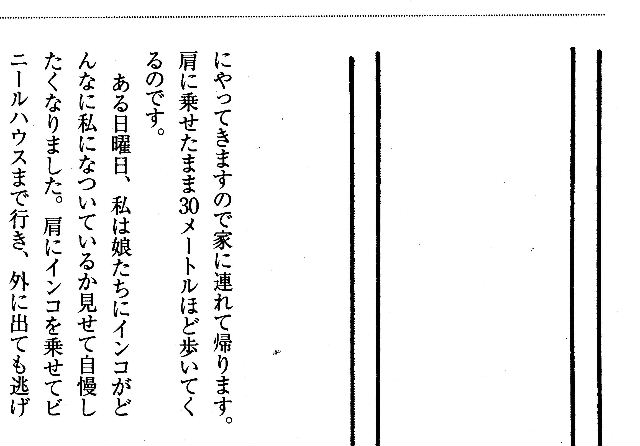 にやってきますので家に連れて帰ります。
肩に乗せたまま30メートルほど歩いてく
るのです。
ある日曜日、私は娘たちにインコがど
んなに私になついているか見せて自慢し
たくなりました。肩にインコを乗せてビ
ニールハウスまで行き、外に出ても逃げ